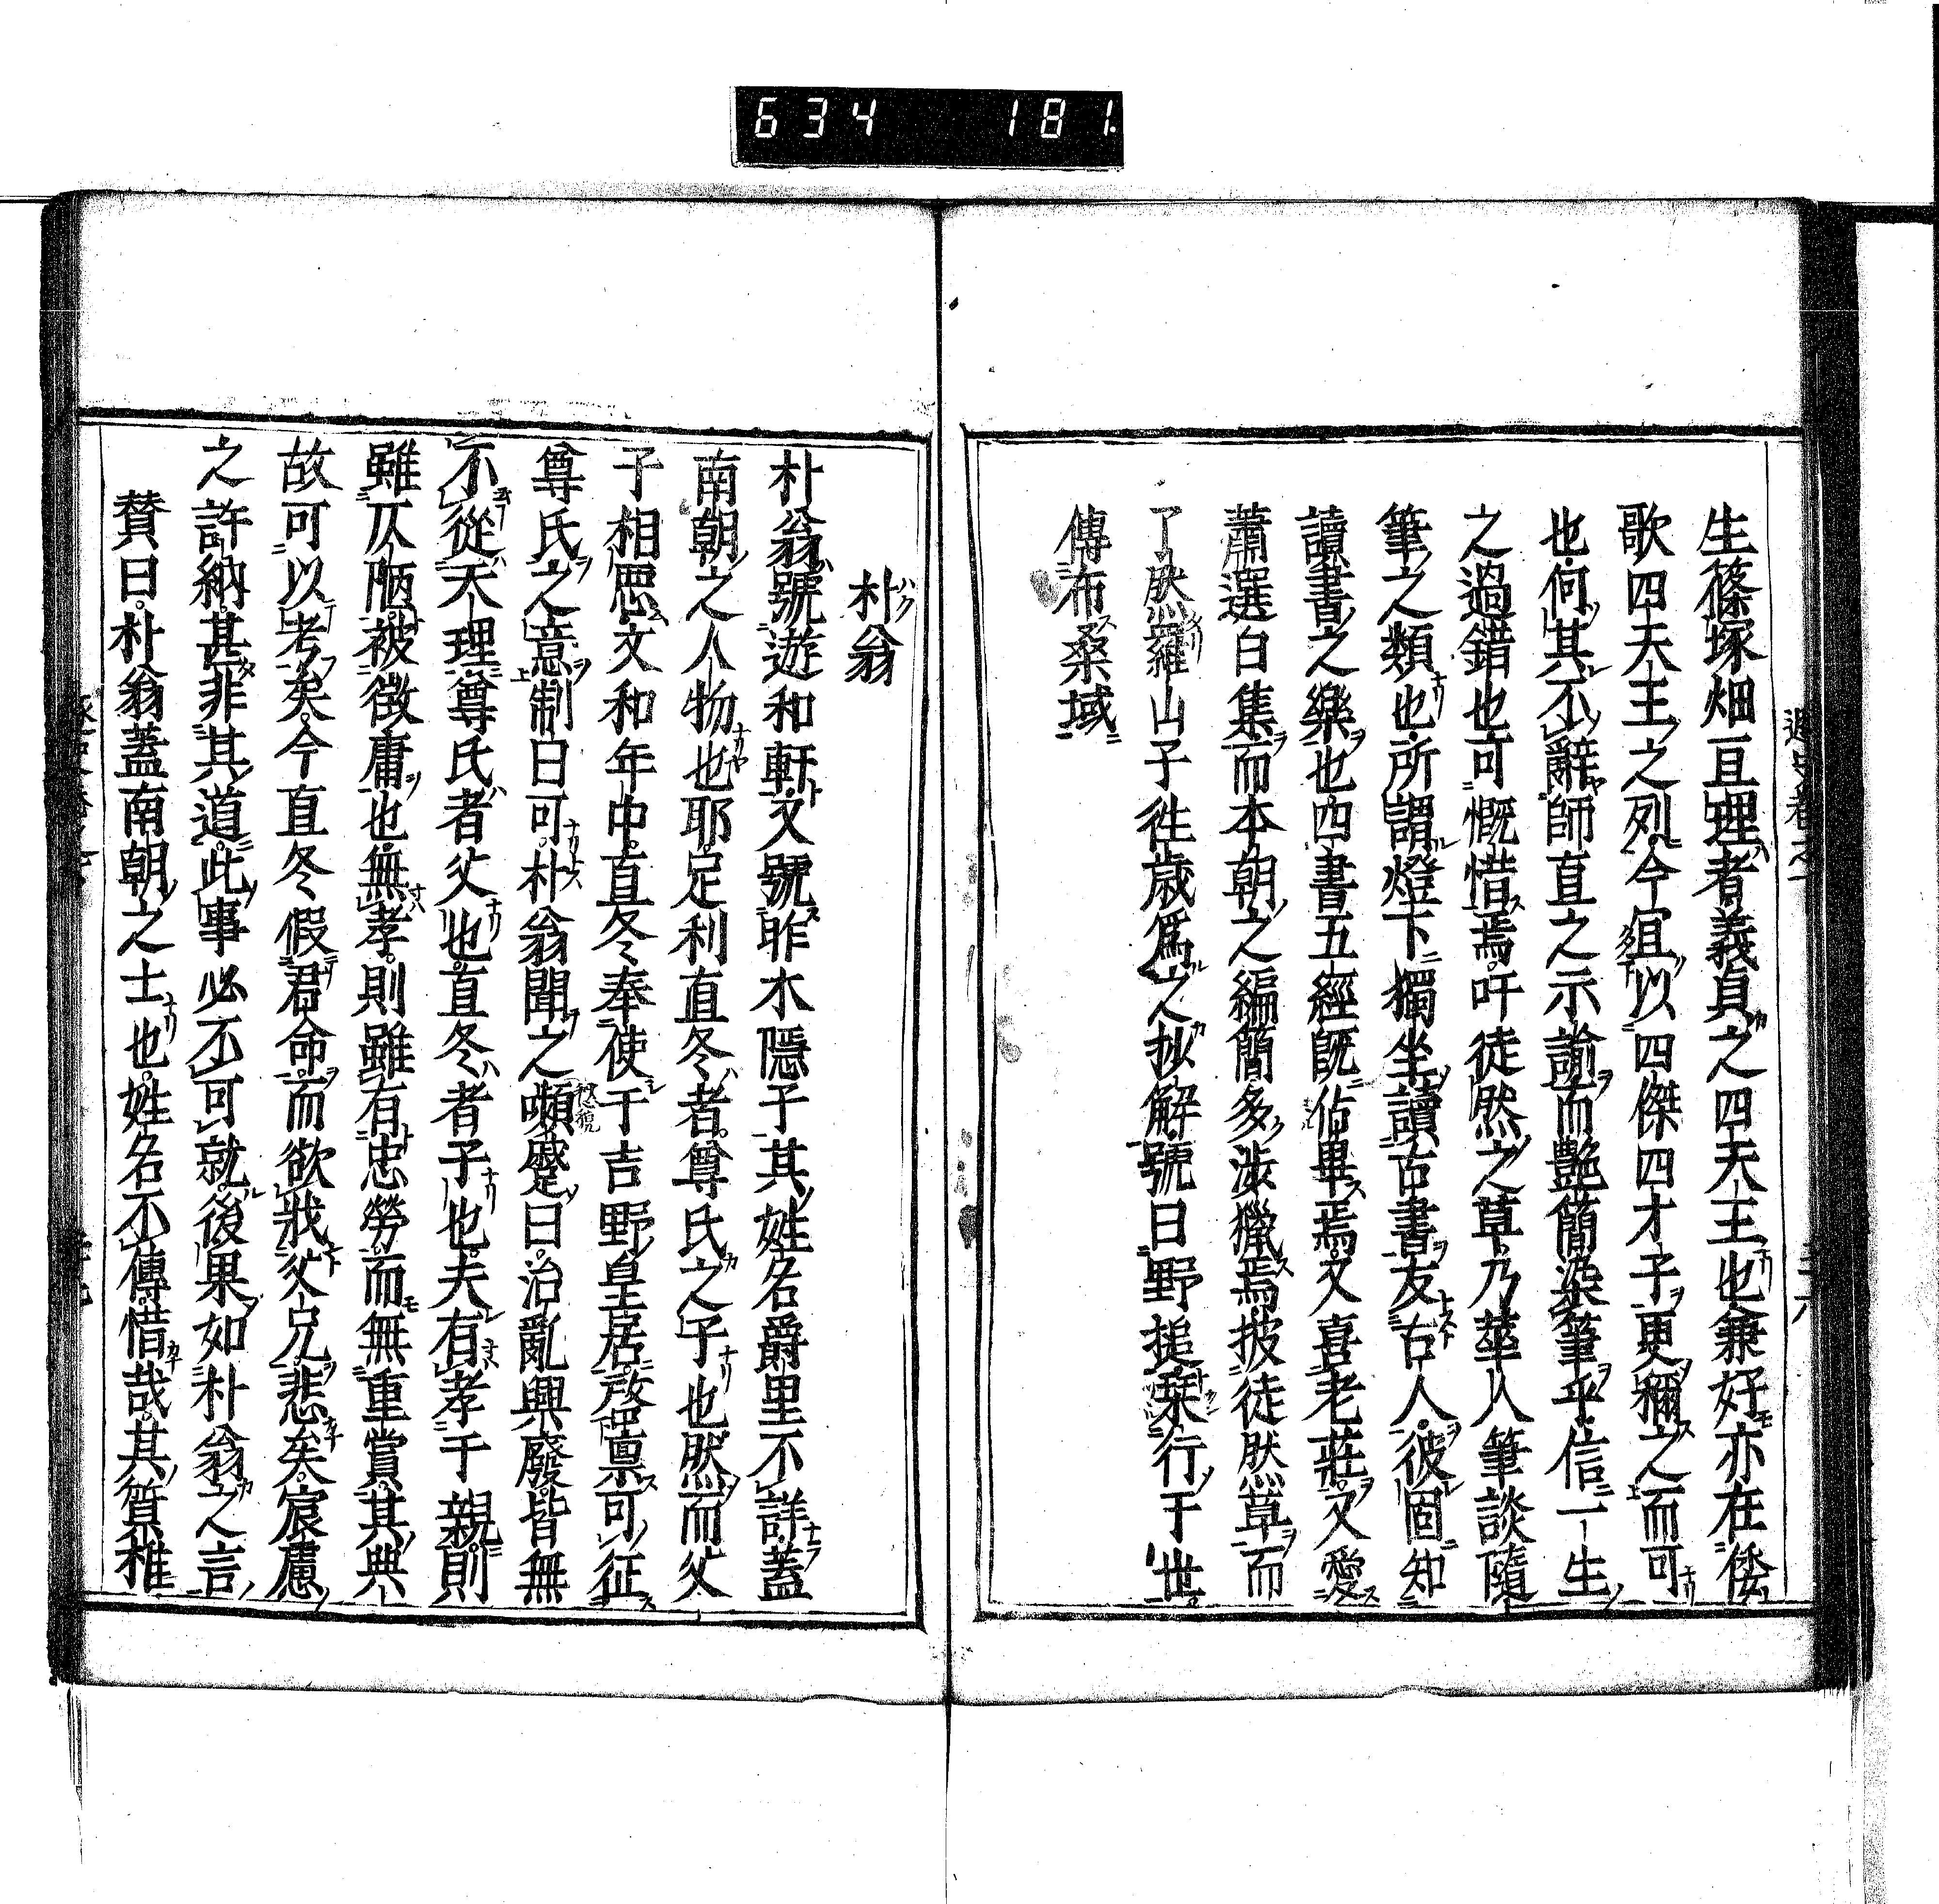 634 181.
生篠塚畑亘理者義貞之四天王也兼好亦在倭
歌四天王之列今宜以四傑四才子更稱之而可
也何其不辭師直之示諭而艷簡染筆乎信一生
之過錯也可慨惜焉吁徒然之草乃華人筆談隨
筆之類也所謂燈下獨坐讀古書友古人彼固知
讀書之樂也四書五經既佔畢焉又喜老莊又愛
蕭選白集而本朝之編簡多涉獵焉披徒然草而
了然羅山子徃歳爲之抄解號曰野搥槧行于世
傳布桑域
朴翁
朴翁號遊和軒又號昨木隱子其姓名爵里不詳蓋
南朝之人物也耶足利直冬者尊氏之子也然而父
子相惡文和年中直冬奉使于吉野皇居啓稟可征
尊氏之意制曰可朴翁聞之嚬蹙曰治亂興廢皆無
不從天理尊氏者父也直冬者子也夫有孝于親則
雖仄陋被徵庸也無孝則雖有忠勞而無重賞其典
故可以考矣今直冬假君命而欲戕父兄悲矣宸慮
之許納甚非其道此事必不可就後果如朴翁之言
賛曰朴翁蓋南朝之士也姓名不傳惜哉其質稚